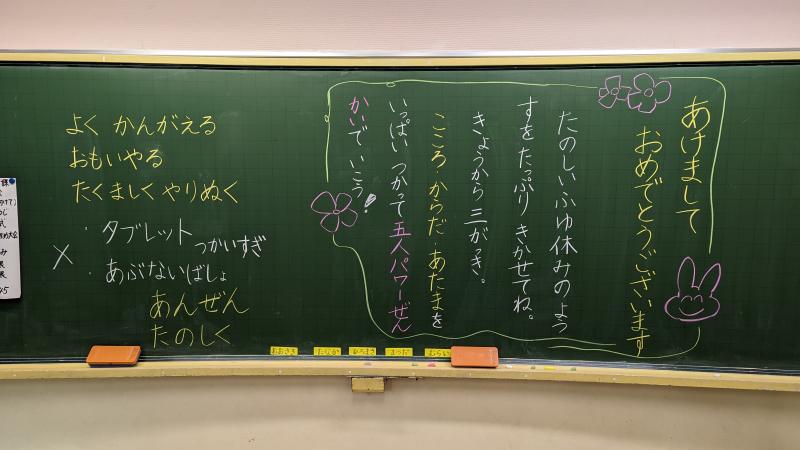 あけまして
おめでとうございます
たのしいふゆ休みのよう
すを たっぷり きかせてね。
きょうから 三がっき。
こころ・からだ・あたまを
いっぱい つかって 五人パワーぜん
かいで いこう!
よく かんがえる
おもいやる
たくましく やりぬく
× ・タブレット つかいすぎ
・あぶないばしょ
あんぜん
たのしく
おおさき
たなか
ひろまさ
まつだ
むらい